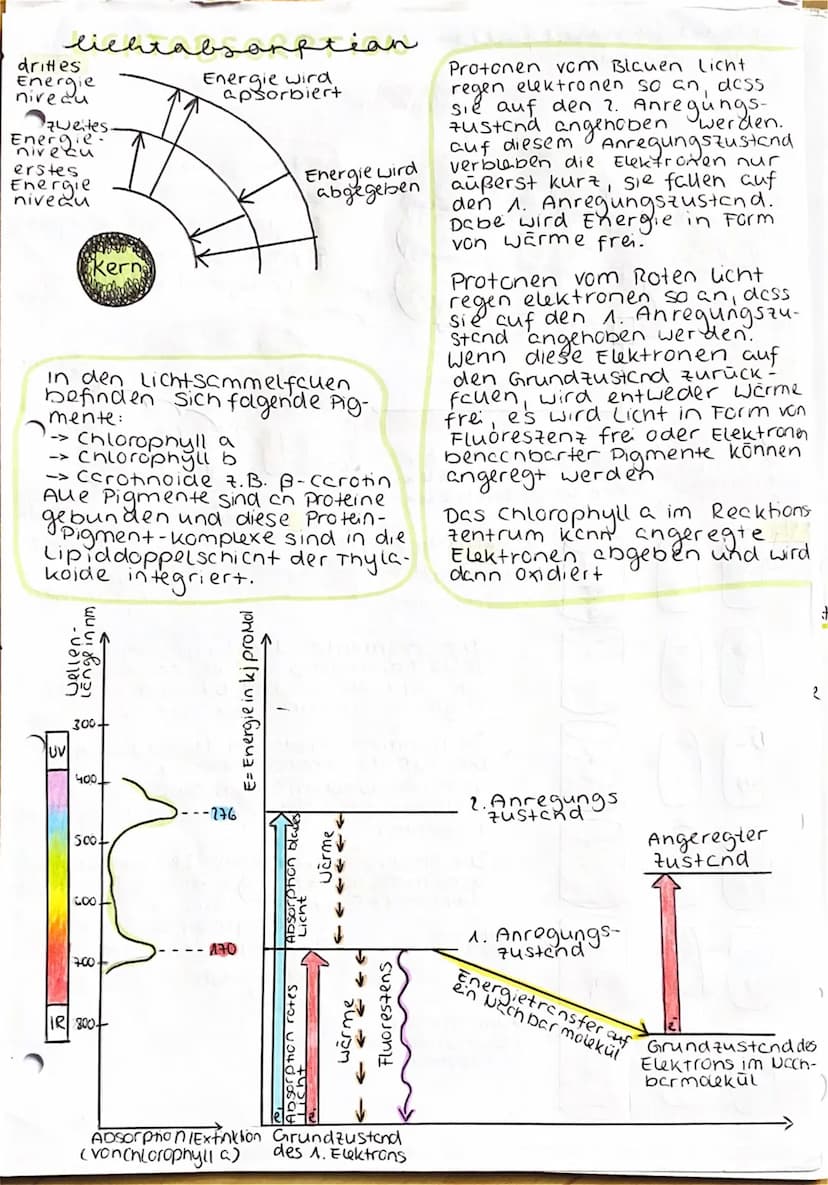 Lichtabsorption
drittes
Energie
niveau
Energie wird
apsorbiert
zweites
Energie-
niveau
erstes
Energie
niveau
Energie wird
abgegeben
Kern
Protonen vom Blauen Licht
regen elektronen so an, dass
sie auf den 2. Anregungs-
zustand angehoben werden.
auf diesem Anregungszustand
verbleiben die Elektronen nur
äußerst kurz, sie fallen auf
den 1. Anregungszustand.
Dabe wird Energie in Form
von Wärme frei.
Protonen vom Roten Licht
regen elektronen so an, dass
sie auf den 1. Anregungszu-
stand angehoben werden.
Wenn diese Elektronen auf
den Grundzustand zurück-
fallen, wird entweder Wärme
frei, es wird Licht in Form von
Fluoreszenz frei oder Elektronen
benachbarter Pigmente können
angeregt werden
Das Chlorophyll a im Reaktions-
zentrum kann angeregte
Elektronen abgeben und wird
dann Oxidiert
In den Lichtsammelfallen
befinden sich folgende Pig-
mente:
-> Chlorophyll a
-> Chlorophyll b
-> Carotinoide z.B. β-Carotin
Alle Pigmente sind an Proteine
gebunden und diese Protein-
Pigment-Komplexe sind in die
Lipiddoppelschicht der Thyla-
koide integriert.
Wellen-
länge in nm
300
400
500
600
700
800
UV
IR
276
170
Absorption/Extinktion
(von Chlorophyll a)
E= Energie in kj pro Mol
2. Anregungs
zustand
Absorption blaues
Licht
Wärme
1. Anregungs-
zustand
Absorption rotes
Licht
Wärme
Fluorestens
e⁻
e⁻
Energietransfer auf
ein Nachbar molekül
Angeregter
Zustand
e⁻
Grundzustand des
Elektrons im Nach-
barmolekül
Grundzustand
des 1. Elektrons